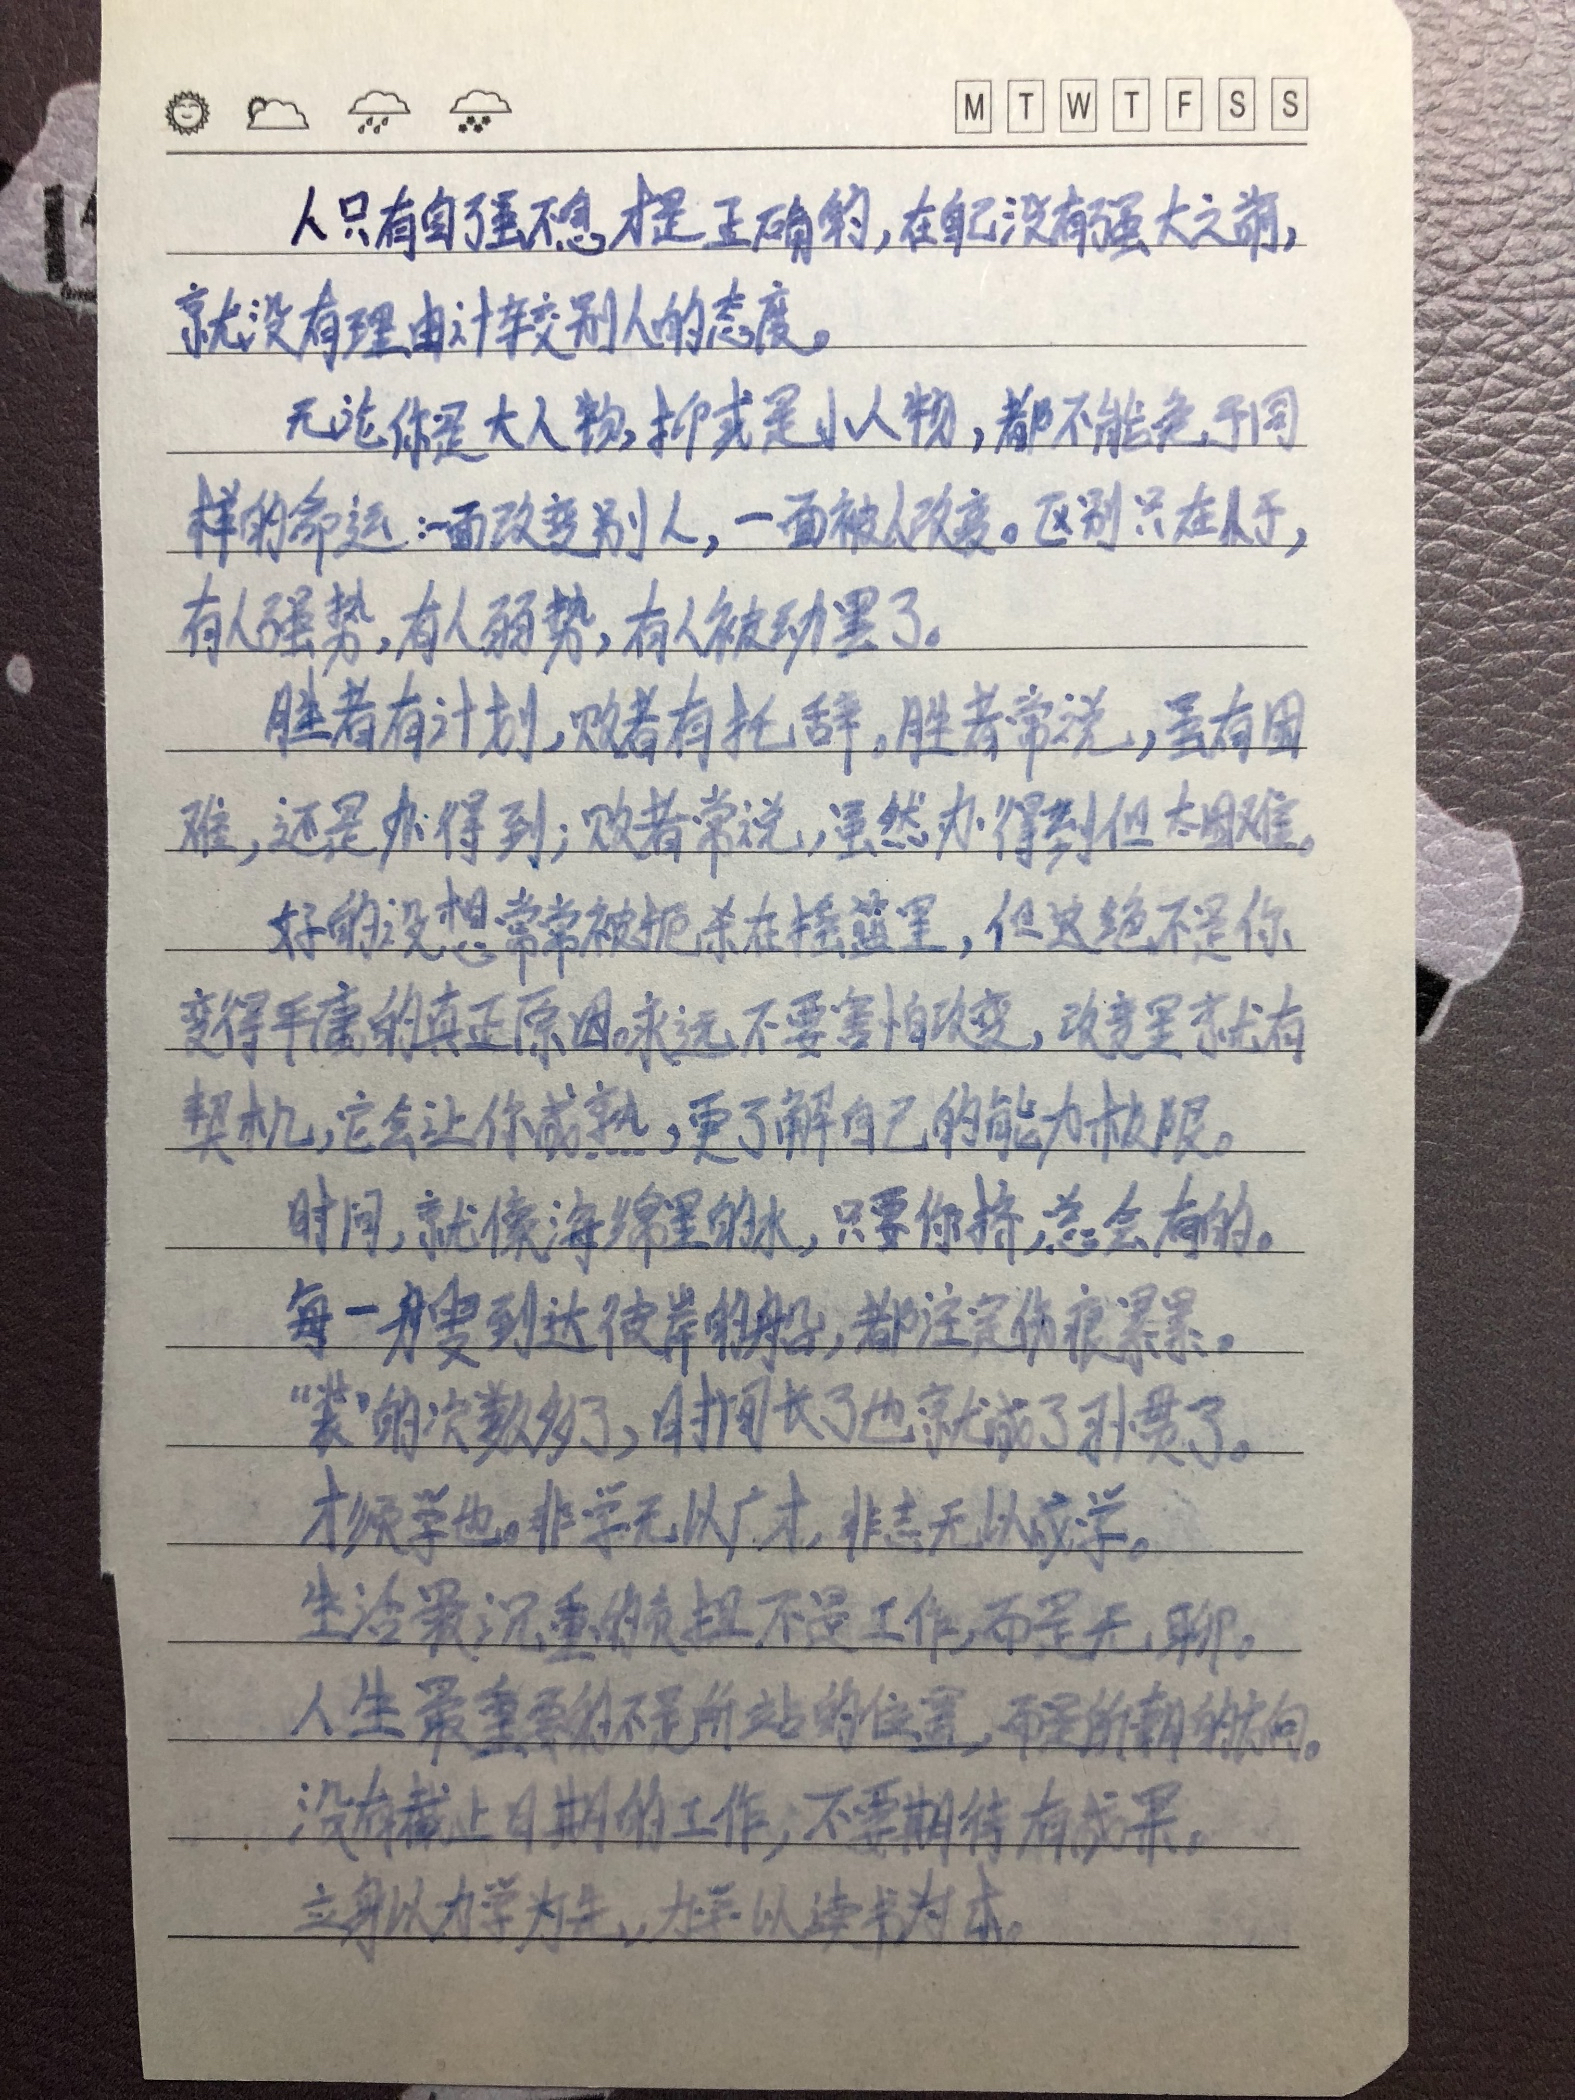 M T W T F S S
人只有自强不息才是正确的,在自己没有强大之前,
就没有理由计较别人的态度。
无论你是大人物,抑或是小人物,都不能免于同
样的命运:一面改变别人,一面被人改变。区别只在于,
有人强势,有人弱势,有人被动罢了。
胜者有计划,败者有托辞。胜者常说,虽有困
难,还是办得到;败者常说,虽然办得到但太困难。
好的设想常常被扼杀在摇篮里,但这绝不是你
变得平庸的真正原因。永远不要害怕改变,改变里就有
契机,它会让你成熟,更了解自己的能力极限。
时间,就像海绵里的水,只要你挤,总会有的。
每一艘到达彼岸的船,都注定伤痕累累。
“装”的次数多了,时间长了也就成了习惯了。
才须学也。非学无以广才,非志无以成学。
生活最沉重的负担不是工作,而是无聊。
人生最重要的不是所站的位置,而是所朝的方向。
没有截止日期的工作,不要期待有成果。
立身以力学为先,力学以读书为本。